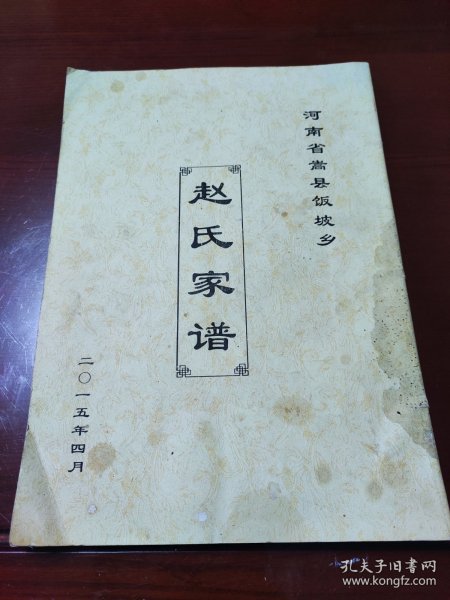 河南省嵩县饭坡乡
赵氏家谱
二〇一五年四月
孔夫子旧书网
www.kongfz.com